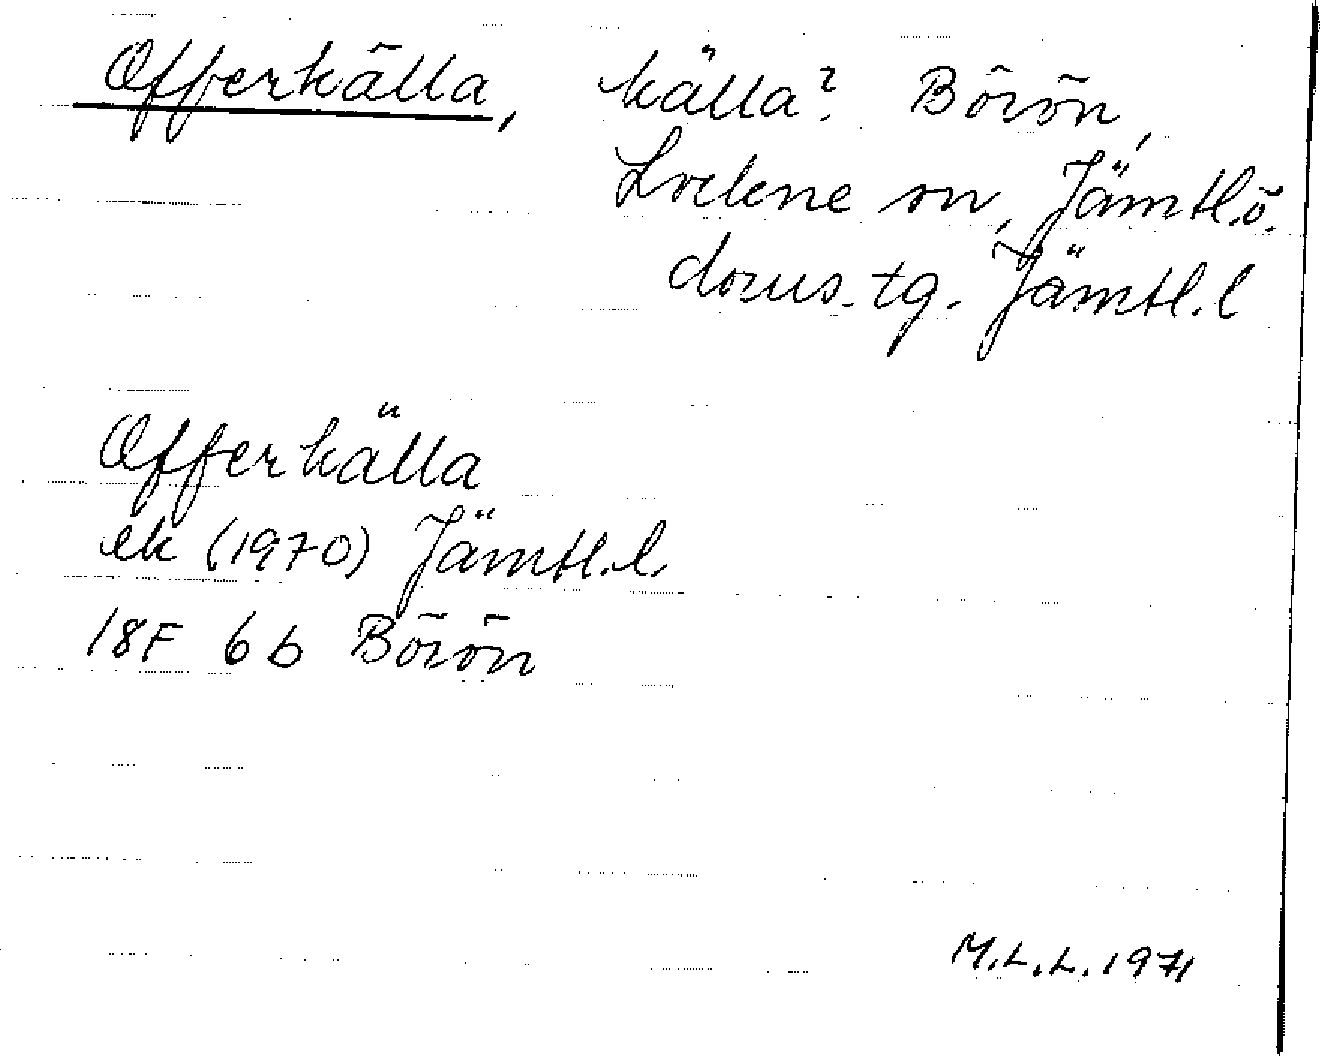 Offerkälla, källa? Börön,
Lockne sn, Jämtl.ö.
doms.tg. Jämtl.l
Offerkälla
ek (1970) Jämtl.l.
18F 6b Börön
M.L.L. 1971